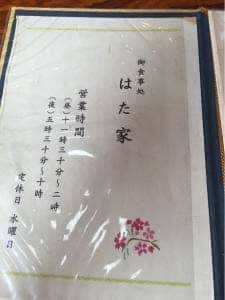 御食事処
はた家
営業時間
(昼)十一時三十分〜二時
(夜)五時三十分〜十時
定休日 水曜日